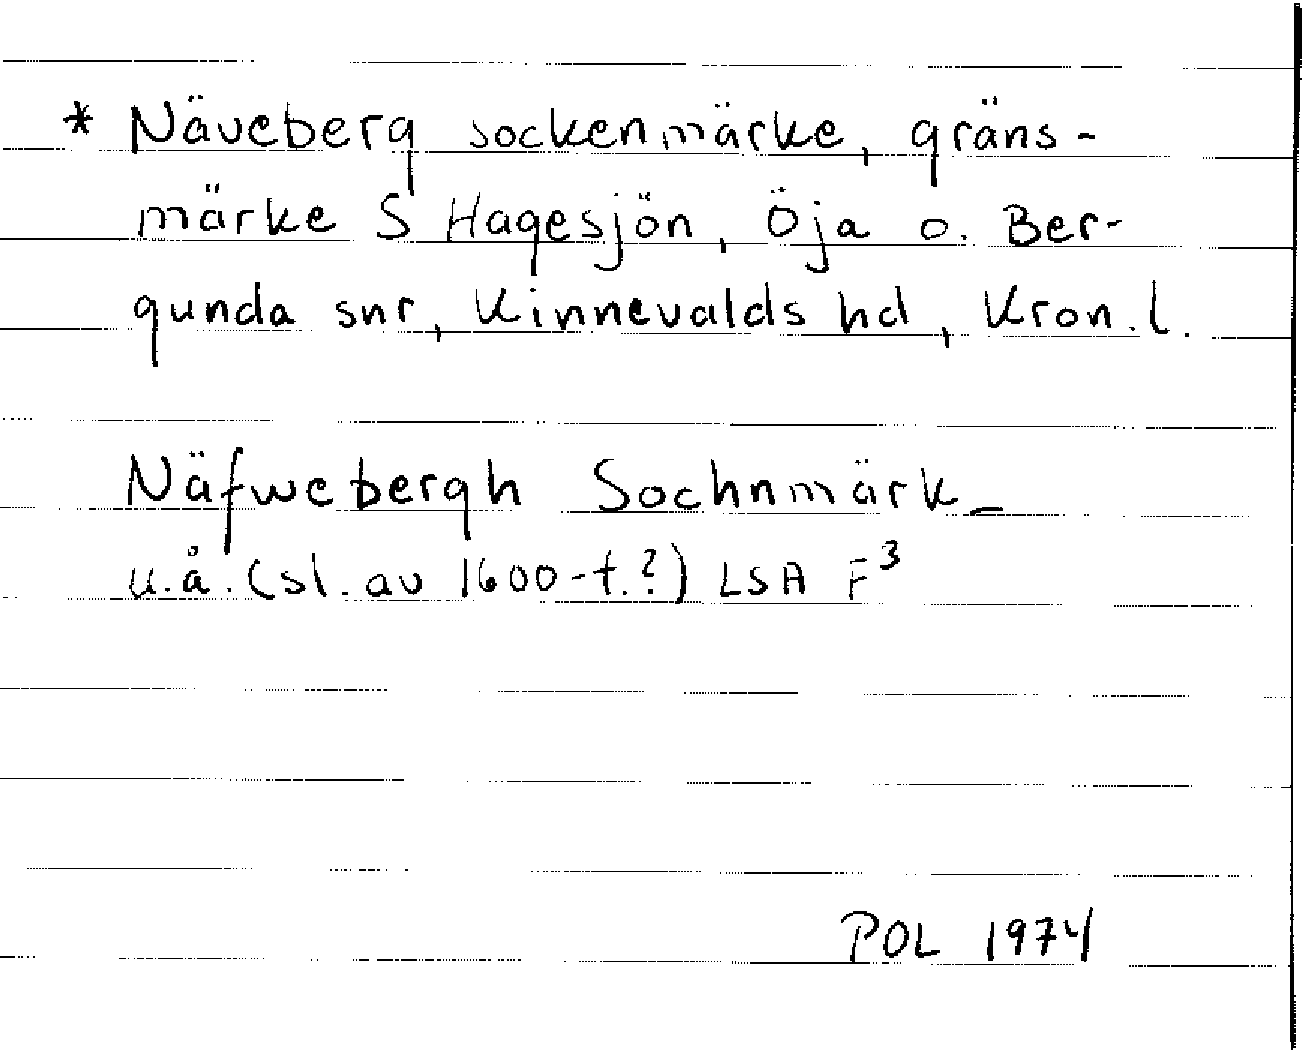 * Näveberg sockenmärke, gräns-
märke S Hagesjön, Öja o. Ber-
gunda snr, Kinnevalds hd, Kron. l.
Näfwebergh Sochnmärk_
u.å. (sl. av 1600-t.?) LSA F³
POL 1974